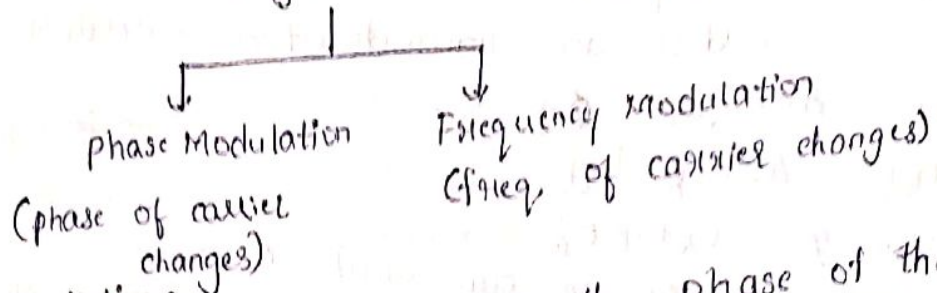 Phase Modulation
(phase of carrier
changes)
Frequency Modulation
(freq. of carrier changes)
phase of th